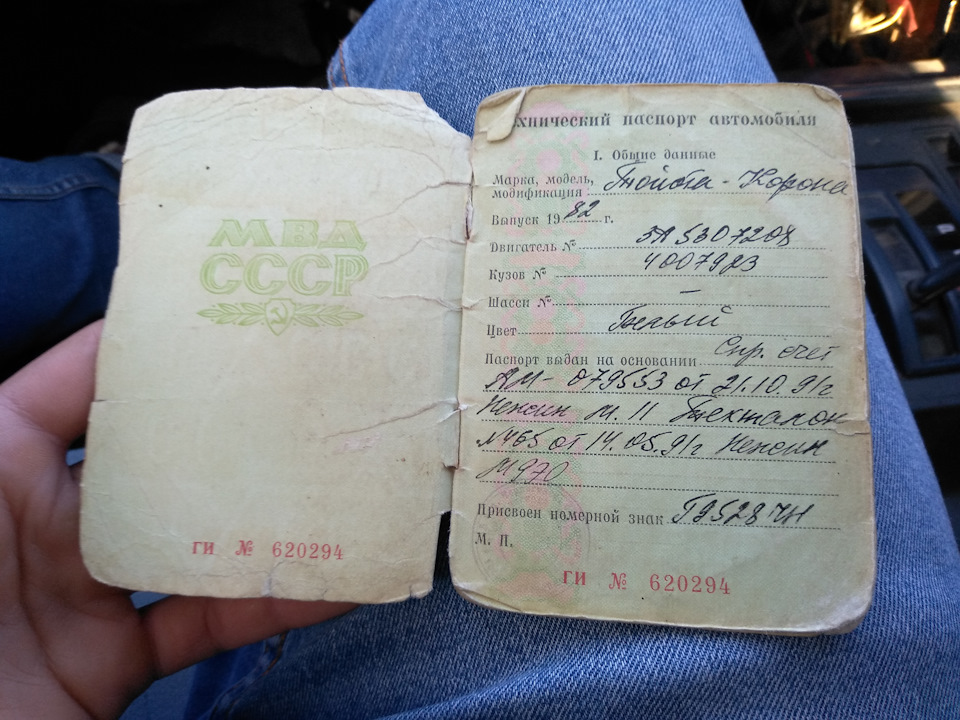 МВД
СССР
ГИ № 620294
хнический паспорт автомобиля
I. Общие данные
Марка, модель,
модификация Тойота-Корона
Выпуск 1982 г.
Двигатель № 3А5307208
Кузов № 4007923
Шасси № —
Цвет Белый
Паспорт выдан на основании Спр. счет
АМ-079553 от 21.10.91г
м. 11 Техталон
№465 от 14.05.91г
М970
Присвоен номерной знак Г9528ЧН
М. П.
ГИ № 620294